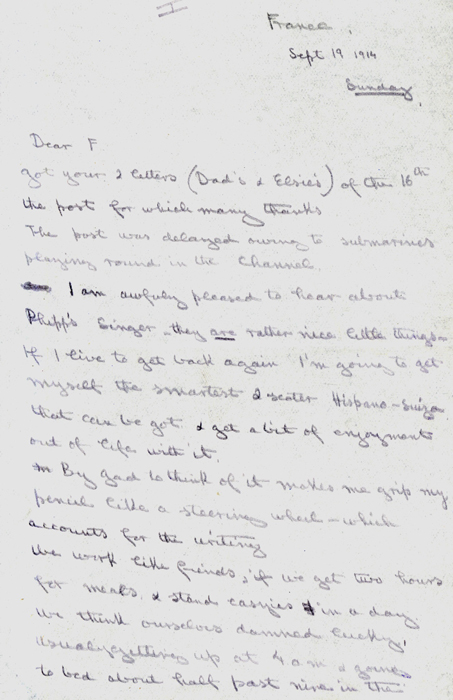 I
France.
Sept 19 1914
Sunday.
Dear F
got your 2 letters (Dad's & Elsie's) of the 16th
the post for which many thanks
The post was delayed owing to submarines
playing round in the Channel.
I am awfully pleased to hear about
Phipp's Singer - they are rather nice little things -
If I live to get back again I'm going to get
myself the smartest 2 seater Hispano-Suiza
that can be got & get a bit of enjoyment
out of life with it.
By gad to think of it makes me grip my
pencil like a steering wheel - which
accounts for the writing
We work like friends, if we get two hours
for meals & stand easies in a day
we think ourselves damned lucky,
usually getting up at 4 am & going
to bed about half past nine in the